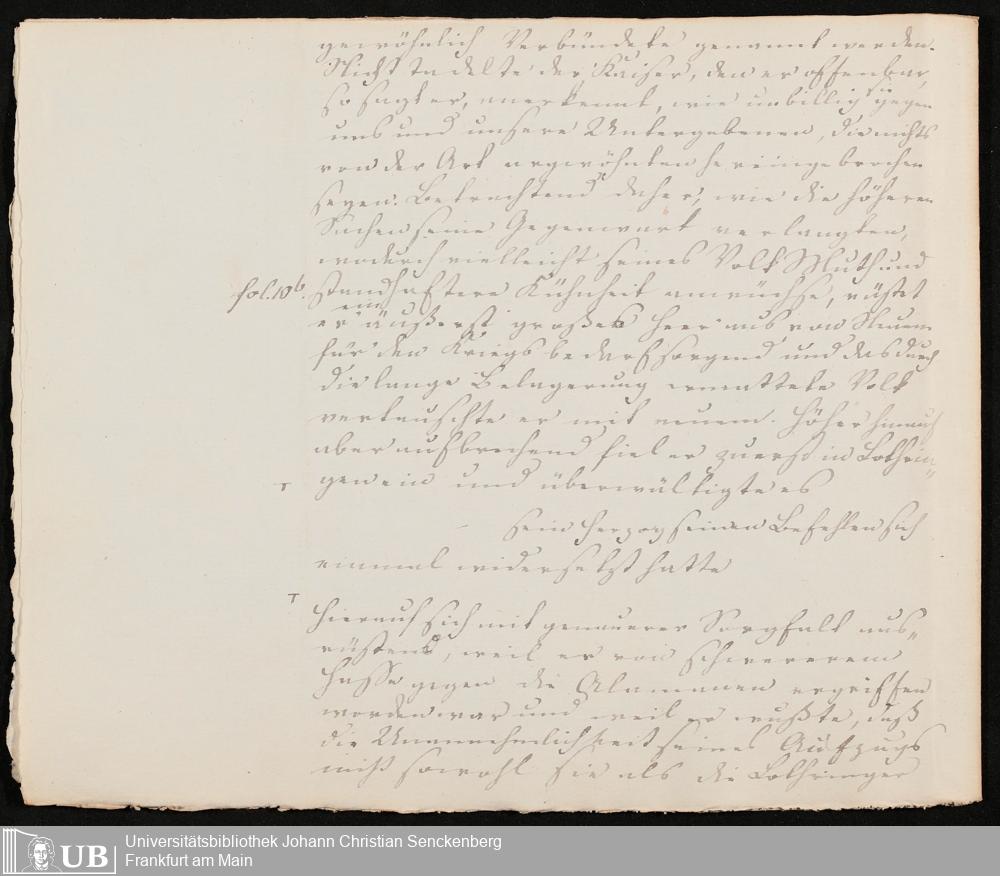 gewöhnlich Verbündete genannt werden.
Nicht tadelte der Kaiser, den er offenbar,
so sagt er, anerkennt, wie unbillig sie gegen
uns und unsere Untergebenen, die nichts
von der Art argwöhnten hereingebrochen
seyen. Betrachtend daher, wie die höheren
Sachen seine Gegenwart verlangten,
wodurch vielleicht seines Volk Muth und
fol. 10b. standhaftere Kühnheit anwüchse, rüstet
er ein äußerst großes Heer aus von Neuem
für den Kriegsbedarf sorgend und das durch
die lange Belagerung ermattete Volk
vertauschte er mit neuem. Höher hinauf
aber aufbrechend fiel er zuerst in Lothrin-
gen ein und überwältigte es
sein Herzog seinen Befehlen sich
einmal widersetzt hatte
Hierauf sich mit genauerer Sorgfalt aus-
rüstend, weil er von schwererem
Hasse gegen die Alamanen ergriffen
worden war und weil er wußte, daß
die Unannehmlichkeit seines Aufzugs
nicht sowohl sie als die Lothringer
Universitätsbibliothek Johann Christian Senckenberg
Frankfurt am Main
UB